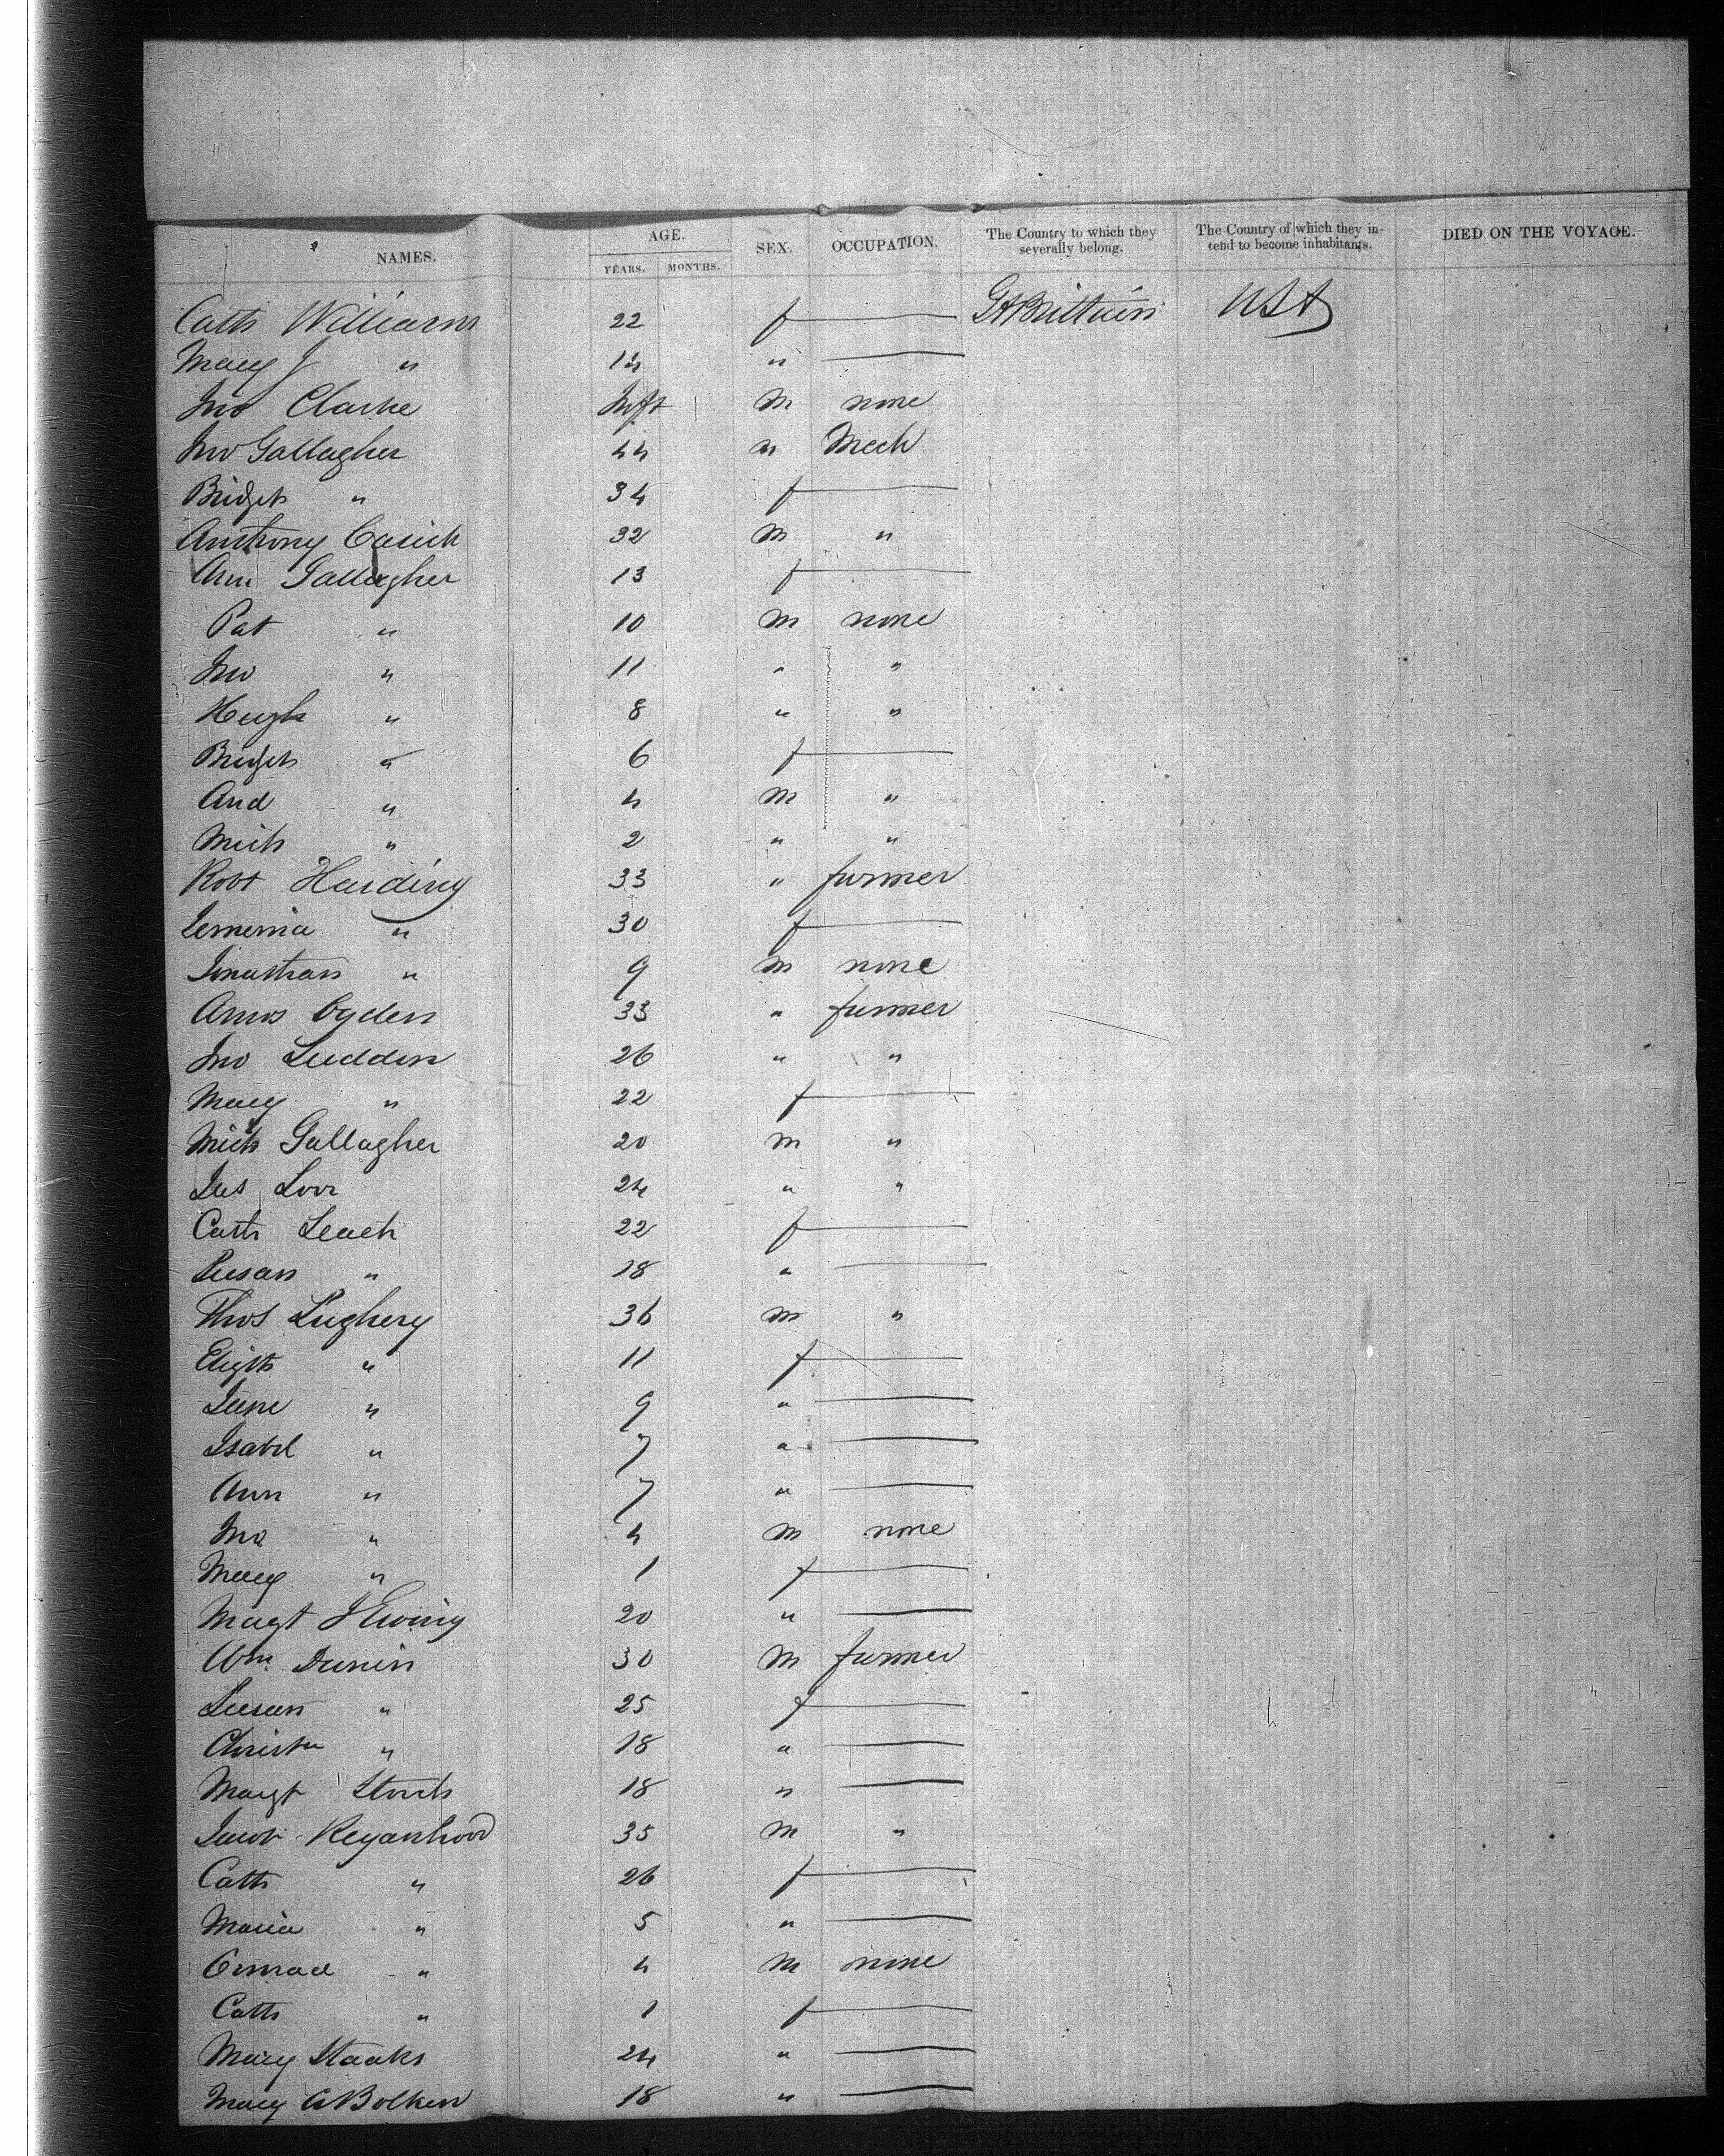 NAMES. AGE. YEARS. MONTHS. SEX. OCCUPATION. The Country to which they severally belong. The Country of which they intend to become inhabitants. DIED ON THE VOYAGE.
Cath Williams 22 f — Gt Brittain USA
Mary J " 14 " —
Jno Clarke Inft M none
Jno Gallagher 44 " Mech
Bridget " 34 f —
Anthony Cusick 32 M "
Ann Gallagher 13 f —
Pat " 10 M none
Jno " 11 " "
Hugh " 8 " "
Bridget " 6 f —
And " 4 M "
Mich " 2 " "
Robt Harding 33 " farmer
Jemima " 30 f —
Jonathan " 9 M none
Amos Ogden 33 " farmer
Jno Luddin 26 " "
Mary " 22 f —
Mich Gallagher 20 M "
Jas 24 " "
Cath Leach 22 f —
Susan " 18 " —
Thos Lughery 36 M "
Elizth " 11 f —
Jane " 9 " —
Isabel " 7 " —
Ann " 7 " —
Jno " 4 M none
Mary " 1 f —
Magt J Ewing 20 " —
Wm Dunin 30 M farmer
Susan " 25 f —
Christn " 18 " —
Margt 18 " —
Jacob Reganhood 35 M "
Cath " 26 f —
Maria " 5 " —
Conrad " 4 M none
Cath " 1 f —
Mary Staaks 24 " —
Mary A Bolken 18 " —